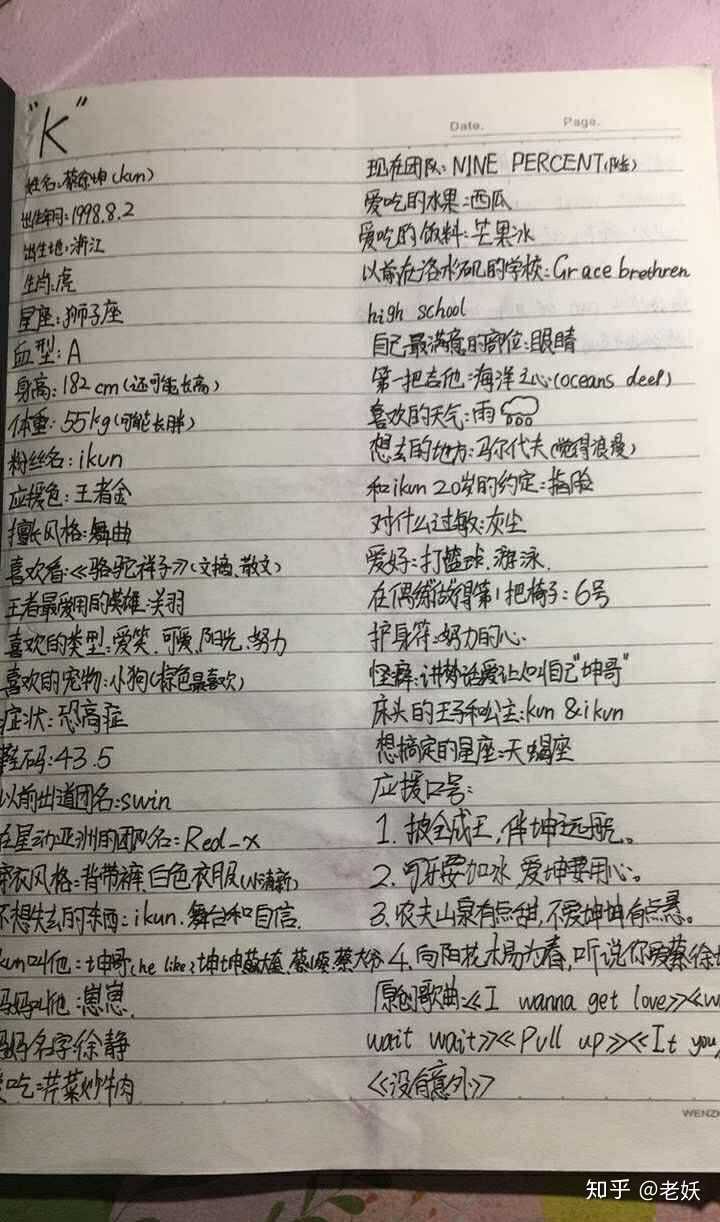 "K"
姓名:蔡徐坤(kun)
出生年月:1998.8.2
出生地:浙江
生肖:虎
星座:狮子座
血型:A
身高:182cm(还可能长高)
体重:55kg(可能长胖)
粉丝名:ikun
应援色:王者金
擅长风格:舞曲
喜欢看:《骆驼祥子》(文摘、散文)
王者最爱用的英雄:关羽
喜欢的类型:爱笑、可爱、阳光、努力
喜欢的宠物:小狗(棕色最喜欢)
症状:恐高症
鞋码:43.5
以前出道团名:swin
在星动亚洲的团队名:Red-x
穿衣风格:背带裤、白色衣服(小清新)
不想失去的东西:ikun、舞台和自信
kun叫他:坤哥(he like)坤坤
妈妈叫他:崽崽
妈妈名字:徐静
爱吃:芹菜炒牛肉
Date. Page.
现在团队:NINE PERCENT(队长)
爱吃的水果:西瓜
爱吃的饮料:芒果冰
以前在洛杉矶的学校:Grace brethren
high school
自己最满意的部位:眼睛
第一把吉他:海洋之心(oceans deep)
喜欢的天气:雨
想去的地方:马尔代夫(觉得浪漫)
和ikun 20岁的约定:捏脸
对什么过敏:灰尘
爱好:打篮球、游泳.
在偶练做得第1把椅子:6号
护身符:努力的心
怪癖:讲梦话爱让人叫自己"坤哥"
床头的王子和公主:kun & ikun
想搞定的星座:天蝎座
应援口号:
1. 披全成王,伴坤远航。
2. 可牙要加水,爱坤要用心。
3. 农夫山泉有点甜,不爱坤坤有点悬。
4. 向阳花木易为春,听说你爱蔡徐
原创歌曲:《I wanna get love》《
wait wait》《Pull up》《It you
《没有意外》
WENZ
知乎 @老妖